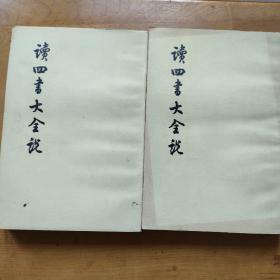 讀四書大全說
讀四書大全說